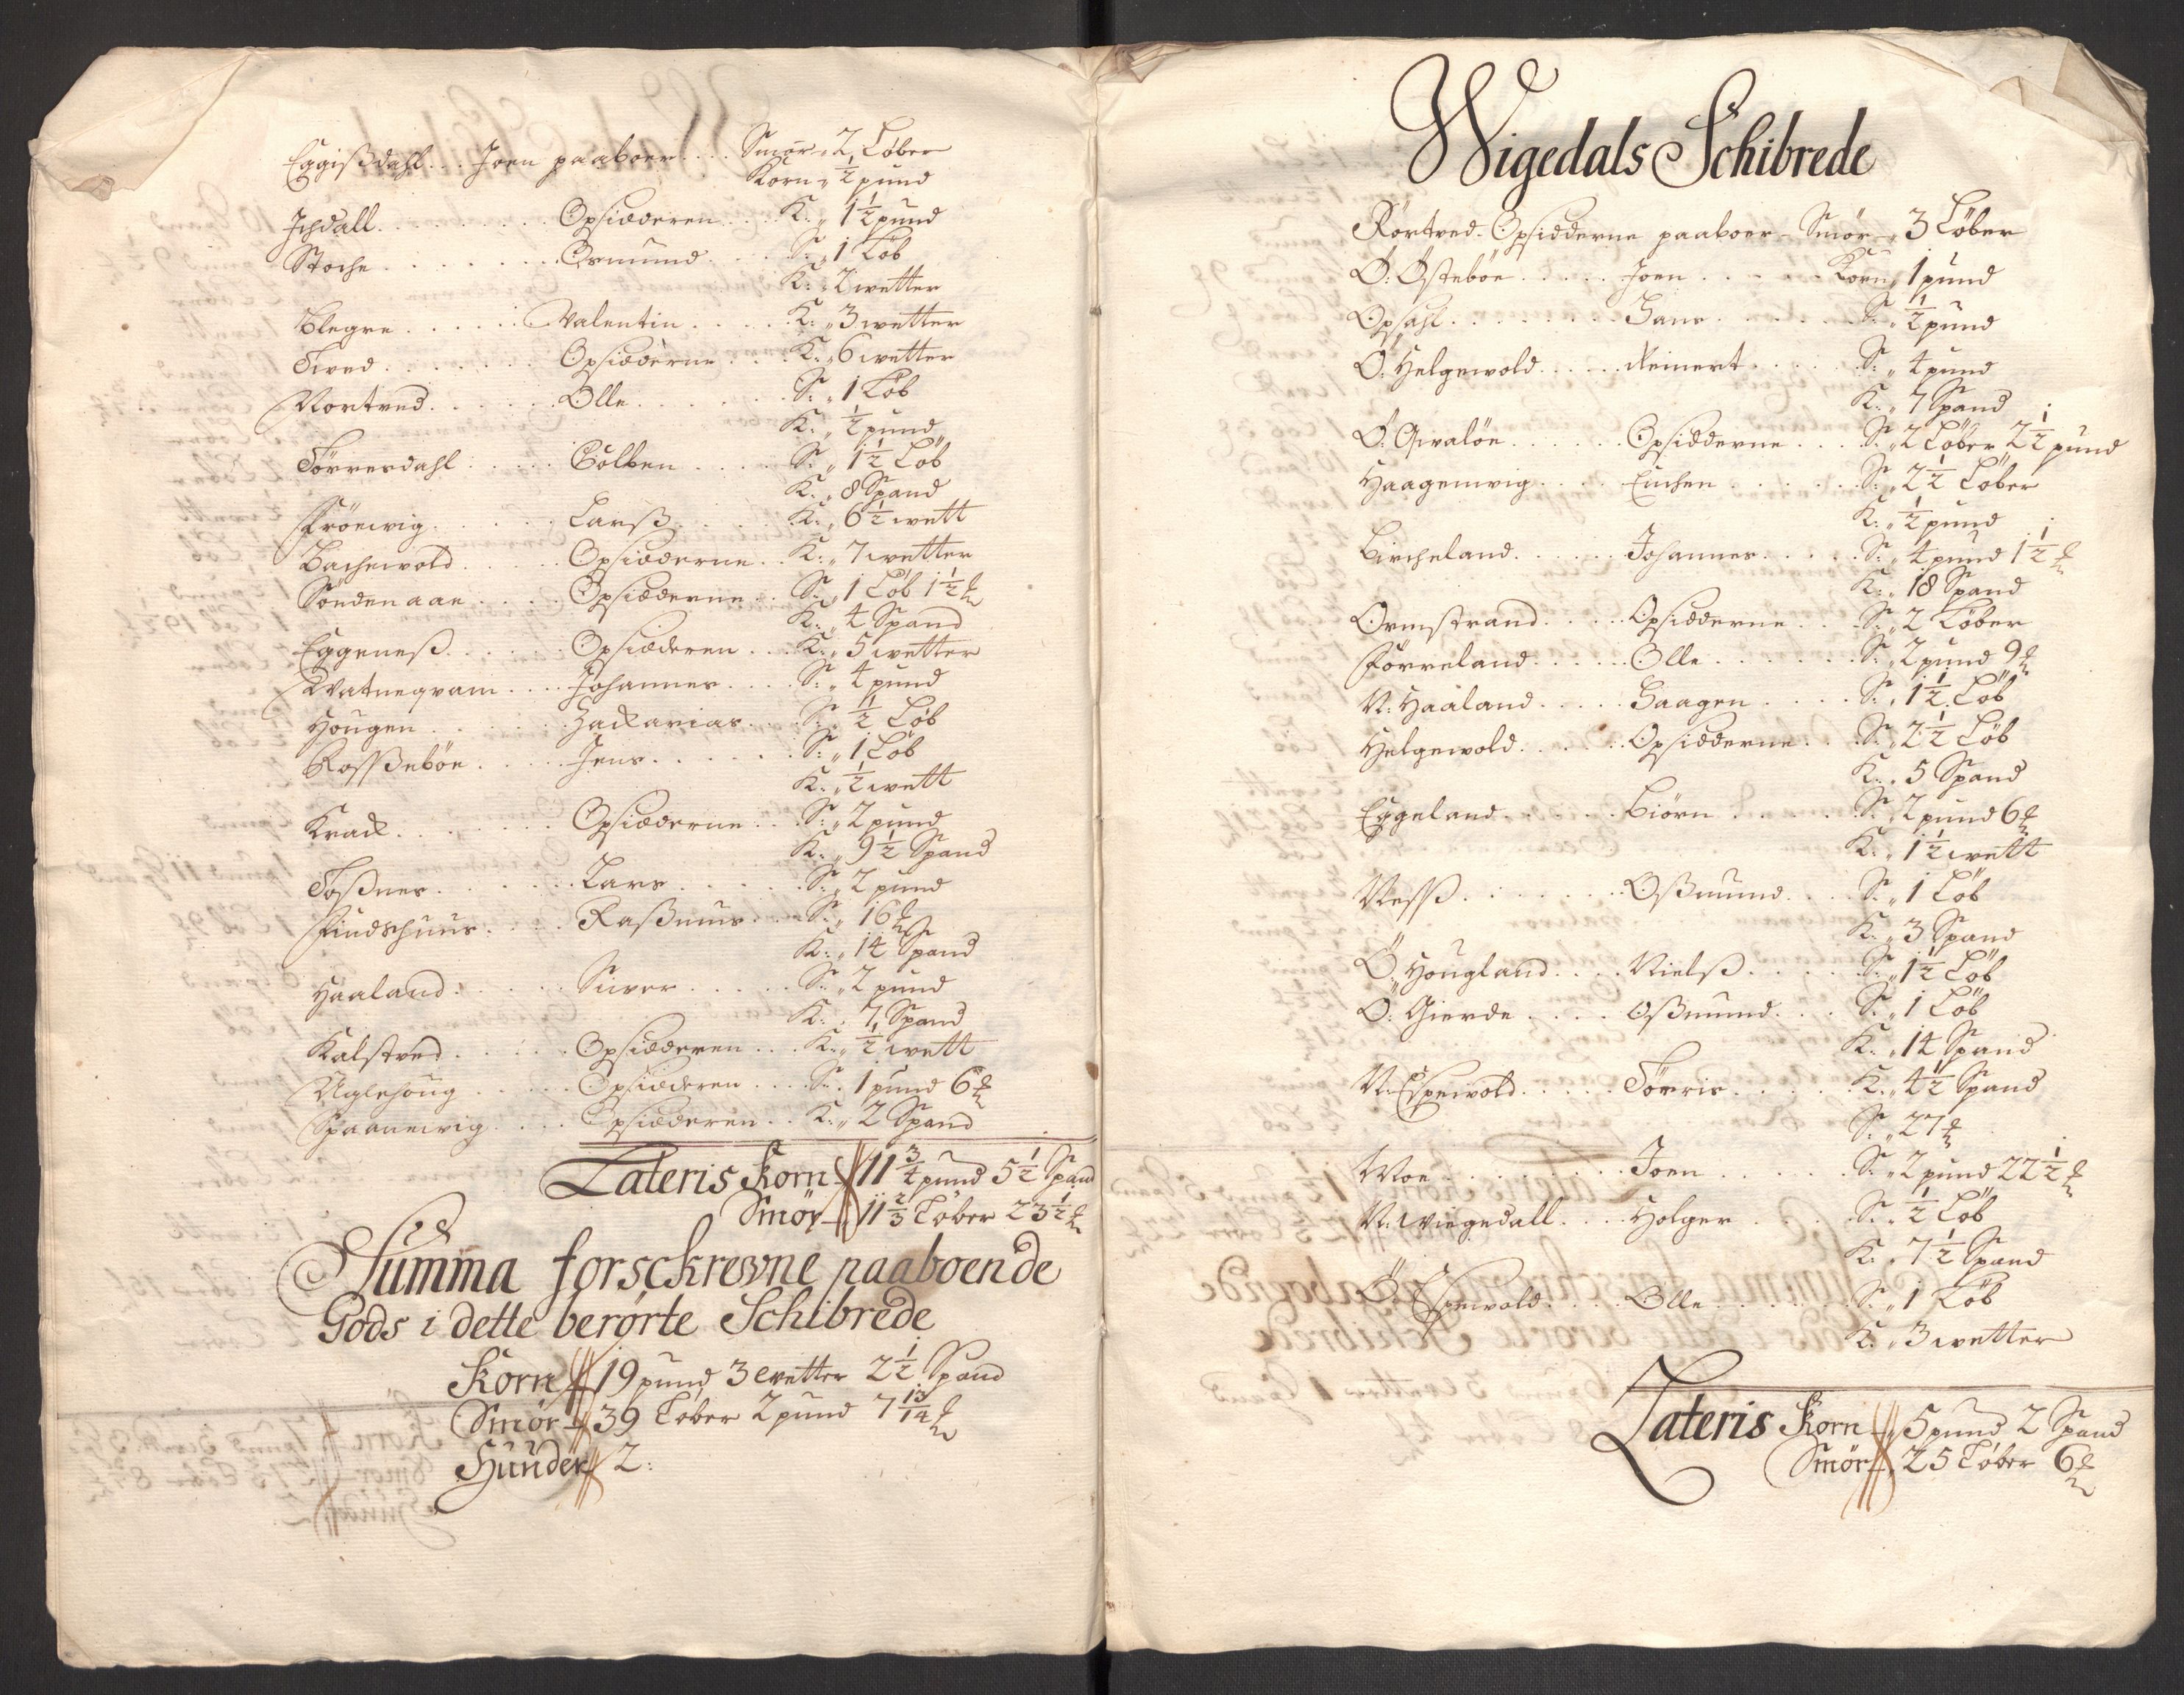 Eggißdahl . . . Joen paaboer . . . . Smör „ 2 Löber
Korn „ ½ pund
Ichdall . . . . . . . . Opsidderen . . . K: „ 1½ pund
Stoche . . . . . . . . Osmund . . . S: „ 1 Löb
K: „ 2 wetter
Blegre . . . . . . Valentin . . . . . K: „ 3 wetter
Tved . . . . . . . Opsidderne . . . K: „ 6 wetter
Nortved . . . . . . Olle . . . . . . S: „ 1 Löb
K: „ ½ pund
Törresdahl . . . . . Golben . . . . S: „ 1½ Löb
K: „ 8 Spand
Fröewig . . . . . . Larß . . . . . K: „ 6½ wett
Bachewold . . . . . Opsidderne . . K: „ 7 wetter
Söndenaae . . . . Opsidderne . . S: „ 1 Löb 1½ ℔
K: „ 4 Spand
Eggeneß . . . . . . Opsidderen . . . K: „ 5 wetter
Watneqvam . . . . Johannes . . . . S: „ 4 pund
Hougen . . . . . . Zackarias . . . S: „ ½ Löb
Rosseböe . . . . . Jens . . . . . . S: „ 1 Löb
K: „ ½ wett
Krack . . . . . . . Opsidderne . . S: „ 2 pund
K: „ 9½ Spand
Toßnes . . . . . . . Lars . . . . . . S: „ 2 pund
Findshuus . . . . Raßmus . . . S: „ 16 ℔
K: „ 14 Spand
Haaland . . . . . . Siver . . . . . S: „ 2 pund
K: „ 7 Spand
Kalstved . . . . . . Opsidderen . . . K: „ ½ wett
Uglehoug . . . . . Opsidderen . . . . S: „ 1 pund 6 ℔
Spaanewig . . . . Opsidderen . . K: „ 2 Spand
Lateris Korn „ 11¾ pund 5½ Spand
Smör „ 11⅔ Löber 23½ ℔
Summa forsckrevne paaboende
Gods i dette berørte Schibrede
Korn 19 pund 3 wetter 2½ Spand
Smör 39 Löber 2 pund 7 13/14 ℔
Hunder 2:
Wigedals Schibrede
Rörtved - Opsidderne paaboer - Smör „ 3 Löber
Ö: Östeböe . . . . . Joen . . . . . Korn „ 1 pund
Opsahl . . . . . . . . Hans . . . . . . S: „ ½ pund
Ö: Helgewold . . . . . Reinert . . . . . S: „ 4 pund
K: „ 7 Spand
Ö: Qwalöe . . . . . . Opsidderne . . . S: „ 2 Löber 2½ pund
Haagenwig . . . . Euchen . . . . . . S: „ 2½ Löber
K: „ ½ pund
Bircheland . . . . . . Johannes . . . . . S: „ 4 pund 1½ ℔
K: „ 18 Spand
Ormstrand . . . . . Opsidderne . . S: „ 2 Löber
Förreland . . . . . Olle . . . . . . . S: „ 2 pund 9 ℔
N: Haaland . . . . . Haagen . . . . S: „ 1½ Löb
Helgewold . . . . . . Opsidderne . . S: „ 2½ Löb
K: „ 5 Spand
Eggeland . . . . . Biörn . . . . . . S: „ 2 pund 6 ℔
K: „ 1½ wett
Neß . . . . . . . Oßmund . . . S: „ 1 Löb
K: „ 3 Spand
Ö: Hougland . . . . Nielß . . . . . S: „ 1½ Löb
Ö: Gierde . . . . Oßmund . . . S: „ 1 Löb
K: „ 14 Spand
N: Espewold . . . . . Törris . . . . K: „ 4½ Spand
S: „ 27 ℔
Woe . . . . . . . . . Joen . . . . . . S: „ 2 pund 22½ ℔
N: Wiegedall . . . . Holger . . . . S: „ ½ Löb
K: „ 7½ Spand
Ö: Espewold . . . . Olle . . . . . . . S: „ 1 Löb
K: „ 3 wetter
Lateris Korn „ 5 pund 2 Spand
Smör „ 25 Löber 6 ℔